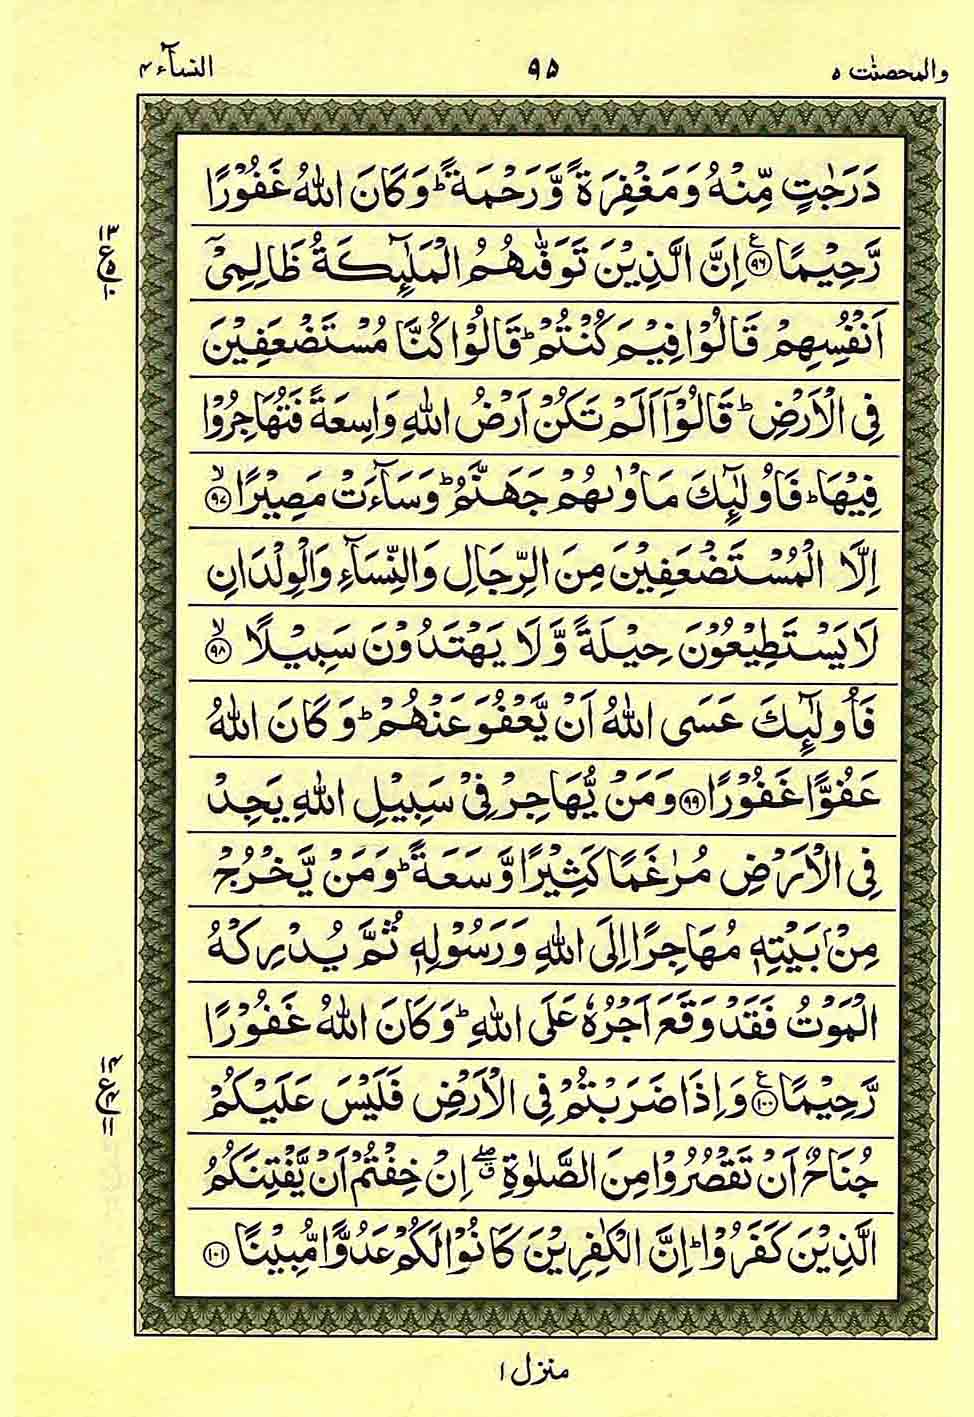 والمحصنٰت ٥ ٩٥ النسآء ٤
دَرَجٰتٍ مِّنْهُ وَمَغْفِرَةً وَّرَحْمَةً ؕ وَكَانَ اللّٰهُ غَفُوْرًا
رَّحِيْمًا ﴿۹۶﴾ اِنَّ الَّذِيْنَ تَوَفّٰىهُمُ الْمَلٰٓئِكَةُ ظَالِمِيْۤ
١٣
ع
١٠
اَنْفُسِهِمْ قَالُوْا فِيْمَ كُنْتُمْ ؕ قَالُوْا كُنَّا مُسْتَضْعَفِيْنَ
فِي الْاَرْضِ ؕ قَالُوْۤا اَلَمْ تَكُنْ اَرْضُ اللّٰهِ وَاسِعَةً فَتُهَاجِرُوْا
فِيْهَا ؕ فَاُولٰٓئِكَ مَاْوٰىهُمْ جَهَنَّمُ ؕ وَسَآءَتْ مَصِيْرًا ۙ﴿۹۷﴾
اِلَّا الْمُسْتَضْعَفِيْنَ مِنَ الرِّجَالِ وَالنِّسَآءِ وَالْوِلْدَانِ
لَا يَسْتَطِيْعُوْنَ حِيْلَةً وَّلَا يَهْتَدُوْنَ سَبِيْلًا ۙ﴿۹۸﴾
فَاُولٰٓئِكَ عَسَى اللّٰهُ اَنْ يَّعْفُوَ عَنْهُمْ ؕ وَكَانَ اللّٰهُ
عَفُوًّا غَفُوْرًا ﴿۹۹﴾ وَمَنْ يُّهَاجِرْ فِيْ سَبِيْلِ اللّٰهِ يَجِدْ
فِي الْاَرْضِ مُرٰغَمًا كَثِيْرًا وَّسَعَةً ؕ وَمَنْ يَّخْرُجْ
مِنْۢ بَيْتِهٖ مُهَاجِرًا اِلَى اللّٰهِ وَرَسُوْلِهٖ ثُمَّ يُدْرِكْهُ
الْمَوْتُ فَقَدْ وَقَعَ اَجْرُهٗ عَلَى اللّٰهِ ؕ وَكَانَ اللّٰهُ غَفُوْرًا
رَّحِيْمًا ﴿۱۰۰﴾ وَاِذَا ضَرَبْتُمْ فِي الْاَرْضِ فَلَيْسَ عَلَيْكُمْ
١٤
ع
١١
جُنَاحٌ اَنْ تَقْصُرُوْا مِنَ الصَّلٰوةِ ۖ اِنْ خِفْتُمْ اَنْ يَّفْتِنَكُمُ
الَّذِيْنَ كَفَرُوْا ؕ اِنَّ الْكٰفِرِيْنَ كَانُوْا لَكُمْ عَدُوًّا مُّبِيْنًا ﴿۱۰۱﴾
منزل ١